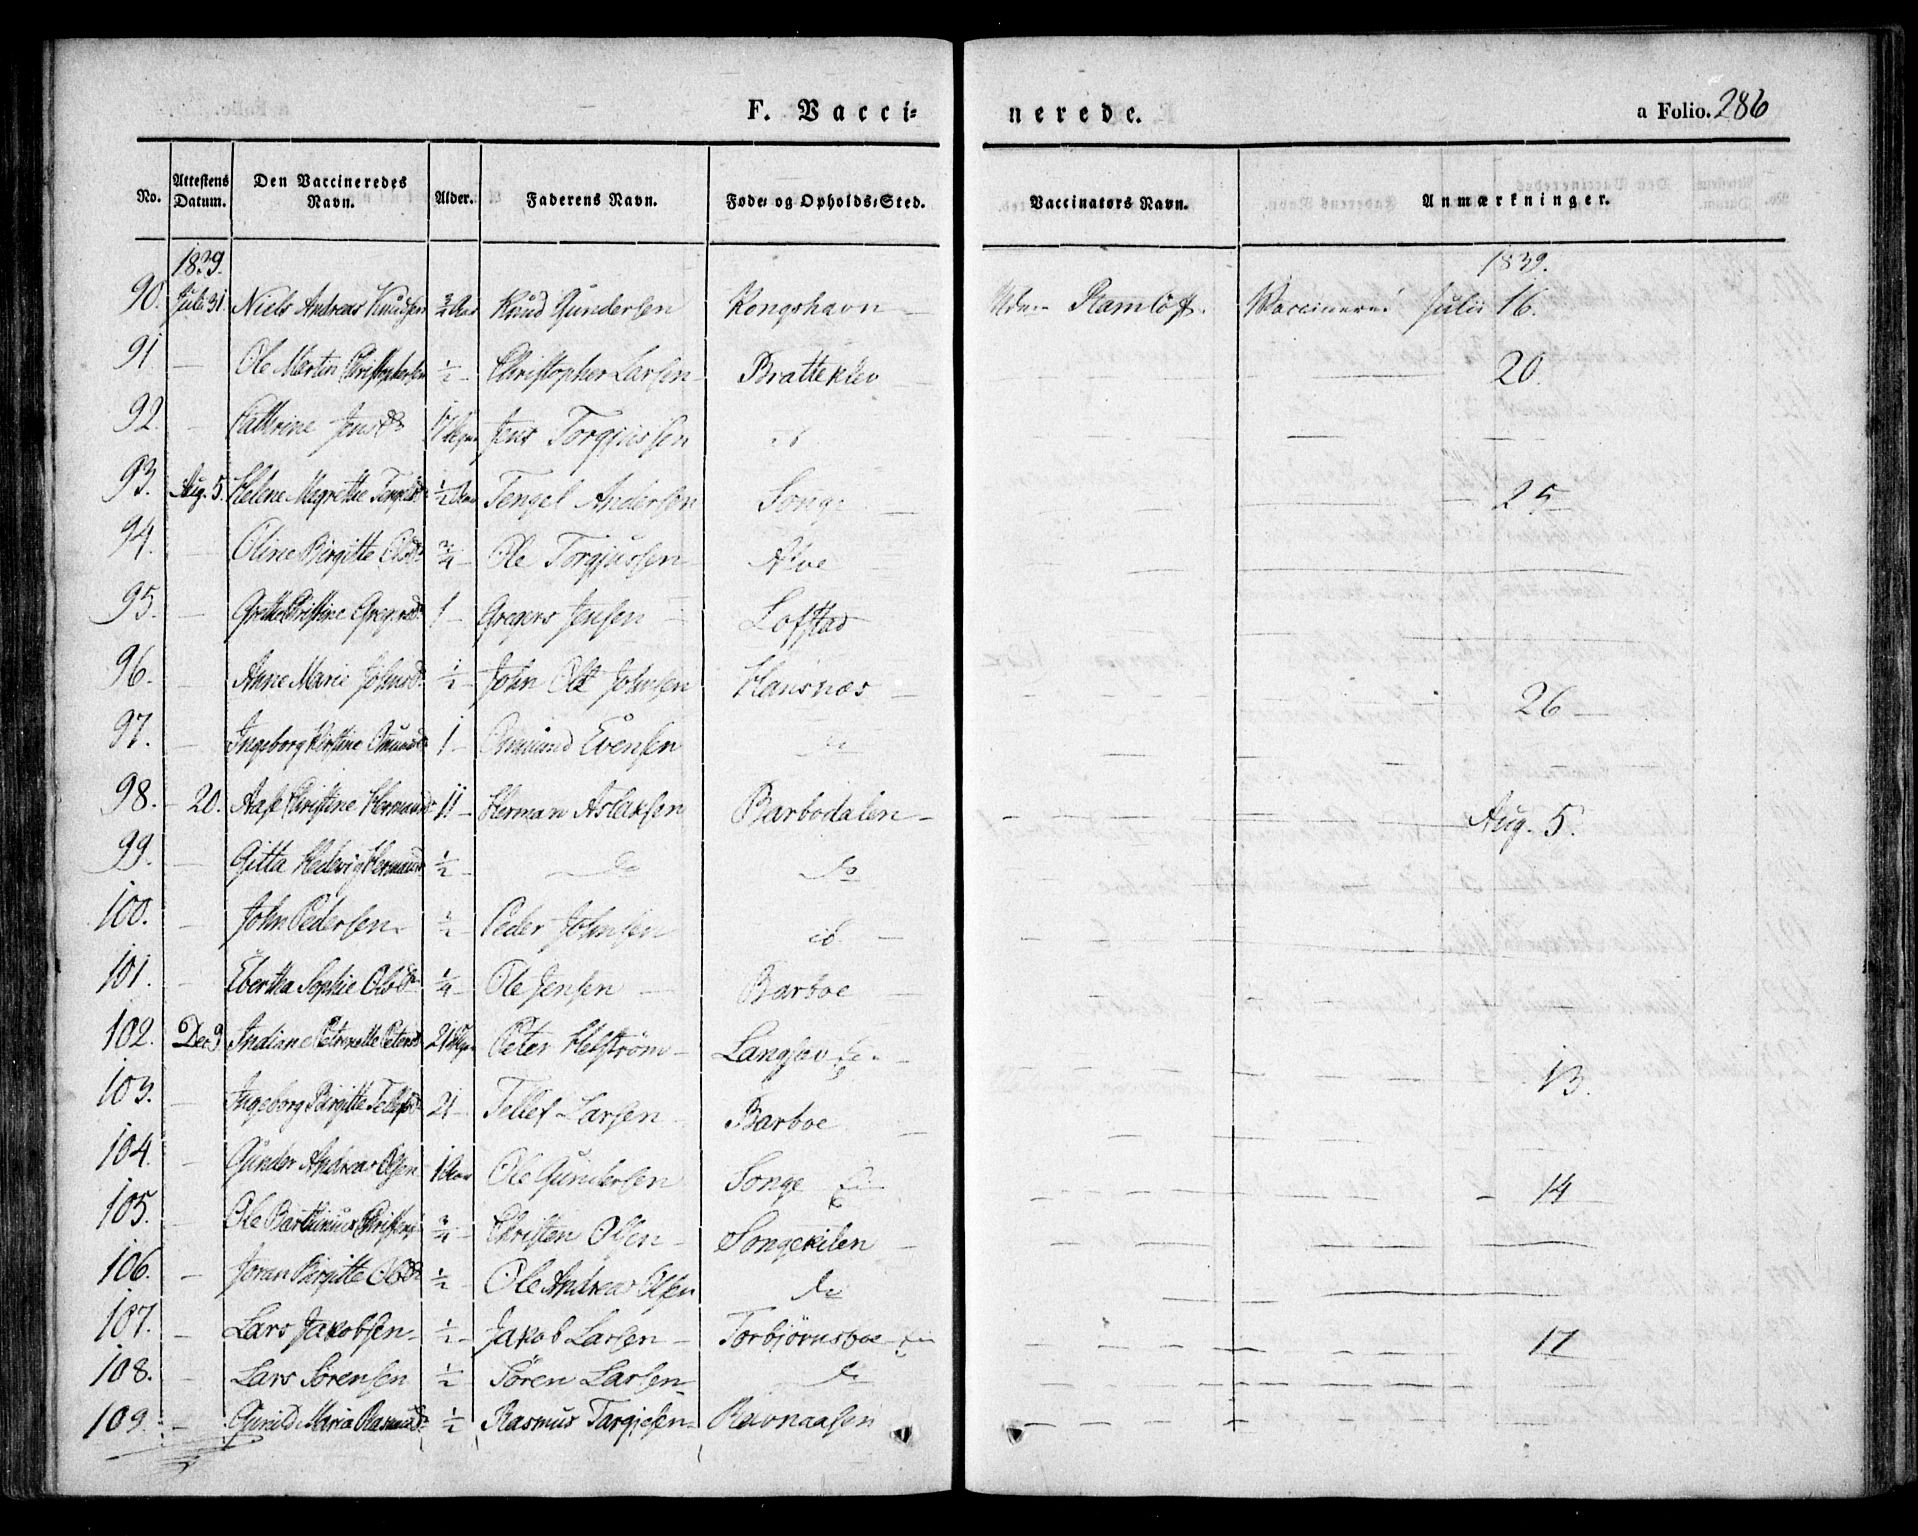 F. Vacci=
nerede.
a Folio. 286
No. Attestens Datum. Den Vaccineredes Navn. Alder. Faderens Navn. Føde= og Opholds=Sted. Vaccinators Navn. Anmærkninger.
1839. 1839.
90. Juli 31. Niels Andreas Knudsen 3/4 Aar Knud Gundersen Kongshavn Ramlöff. Vaccineret Julii 16.
91 — Ole Martin Christophersen 1/2 — Christopher Larsen — Bratteklev — 20.
92. Cathrine Jensd. Jens Torgjussen do
93. Aug. 5. Helene Magrethe 1/2 Aar Tengel Andersen Songe — 25
94. Oline Birgitte Olsd. 3/4 Ole Torgjussen Alve
95. — Grethe Christine 1 — Gregers Jensen Lofstad
96. — Anne Marie Johnsd. 1/2 — John Johnsen Hansnæs — 26 —
97. — Ingeborg Kirstine 1 — Evensen do
98. — 20. Aase Christine Hermansd. Herman Aslaksen Barbodalen — Aug. 5.
99. — Gitta Hedevig Hermansd. 1/2 — do do
100. — John Pedersen Peder Johnsen do —
101. — Sophie Olsd. 1/4 — Ole Jensen — Barboe —
102. Dec 9. Andiane Petronelle Petersd. Peter Langsæv
103. — Ingeborg Birgitte Tellefsd. 21 — Tellef Larsen Barboe 13.
104. — Gunder Andreas Olsen 1 Aar Ole Gundersen Songe — 14
105. — Ole 3/4 — Christen Olsen — Songekilen —
106. — Joran Birgitte Olsd. 1/2 — Ole Andreas Olsen do
107. — Lars Jakobsen — 1/2 — Jakob Larsen — Torbjørnsboe 17
108. — Lars Sørensen 1/2 Søren Larsen do
109. — Gunild Maria Rasmusd. 1/2 Rasmus Targjesen — Revnaasen